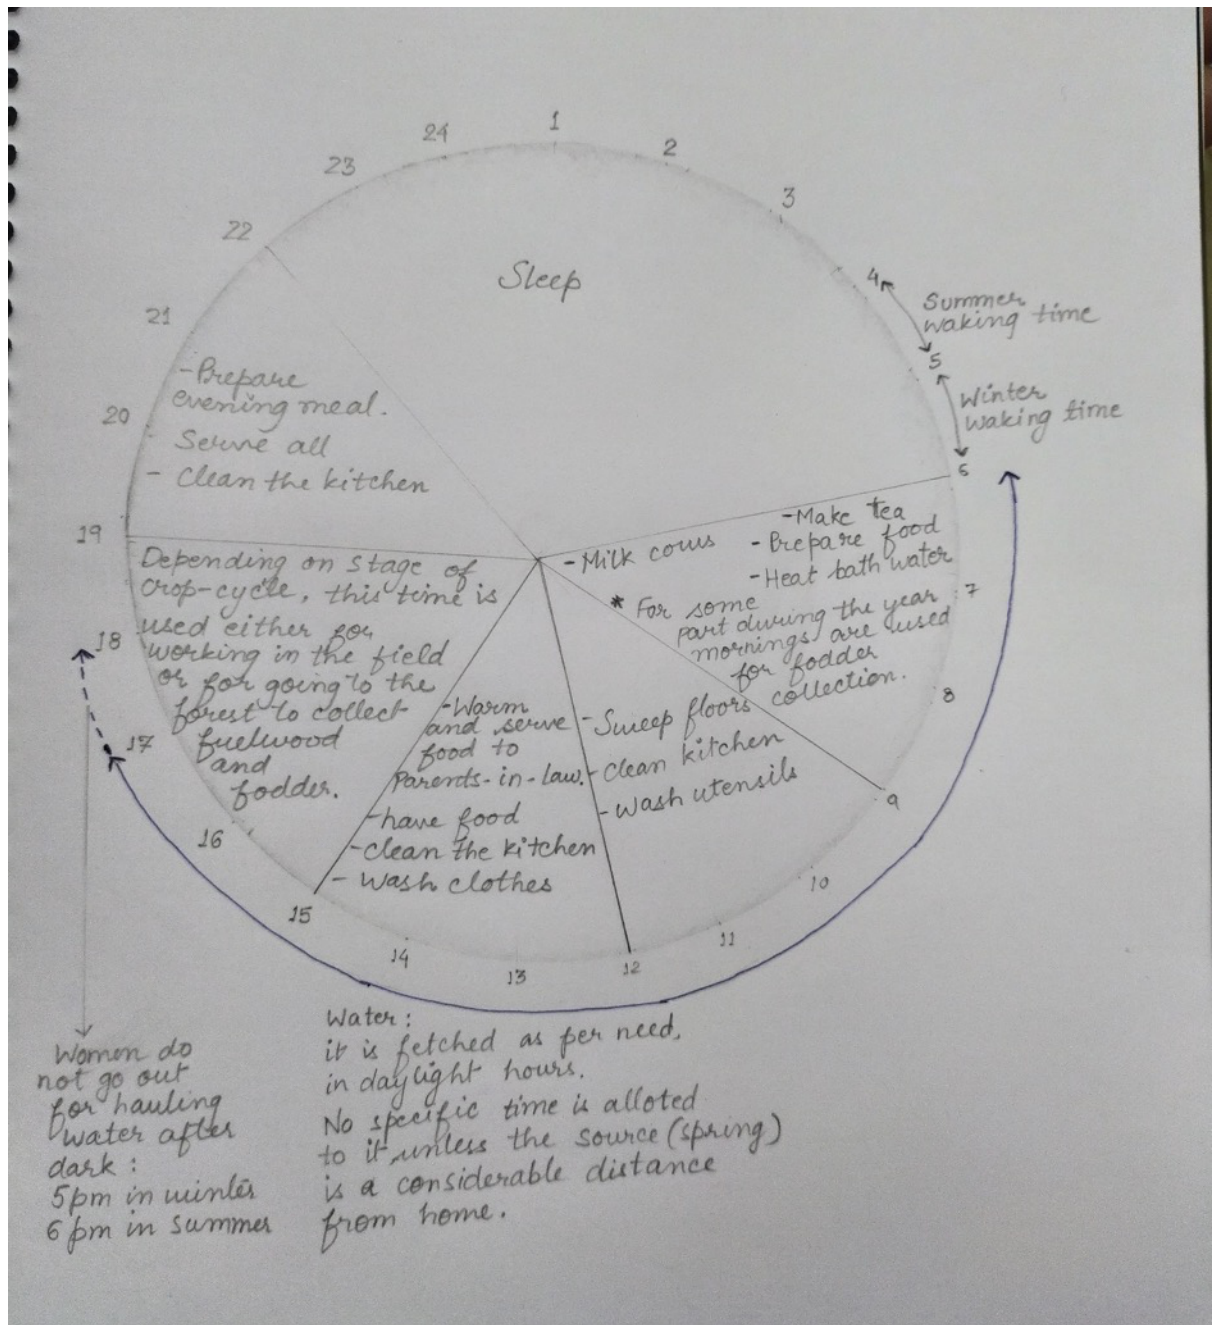 24
1
2
3
23
22
21
20
19
18
17
16
15
14
13
12
11
10
9
8
7
6
5
4
Sleep
Summer
waking time
Winter
waking time
-Prepare
evening meal.
Serve all
- Clean the kitchen
-Milk cows
-Make tea
-Prepare food
-Heat bath water
* For some
part during the year
mornings are used
for fodder
collection.
- Sweep floors
- Clean kitchen
- Wash utensils
-Warm
and serve
food to
Parents-in-law.
-have food
-clean the kitchen
- Wash clothes
Depending on stage of
crop-cycle, this time is
used either for
working in the field
or for going to the
forest to collect
fuelwood
and
fodder.
Women do
not go out
for hauling
water after
dark:
5pm in winter
6 pm in summer
Water:
it is fetched as per need,
in daylight hours.
No specific time is alloted
to it, unless the source (spring)
is a considerable distance
from home.